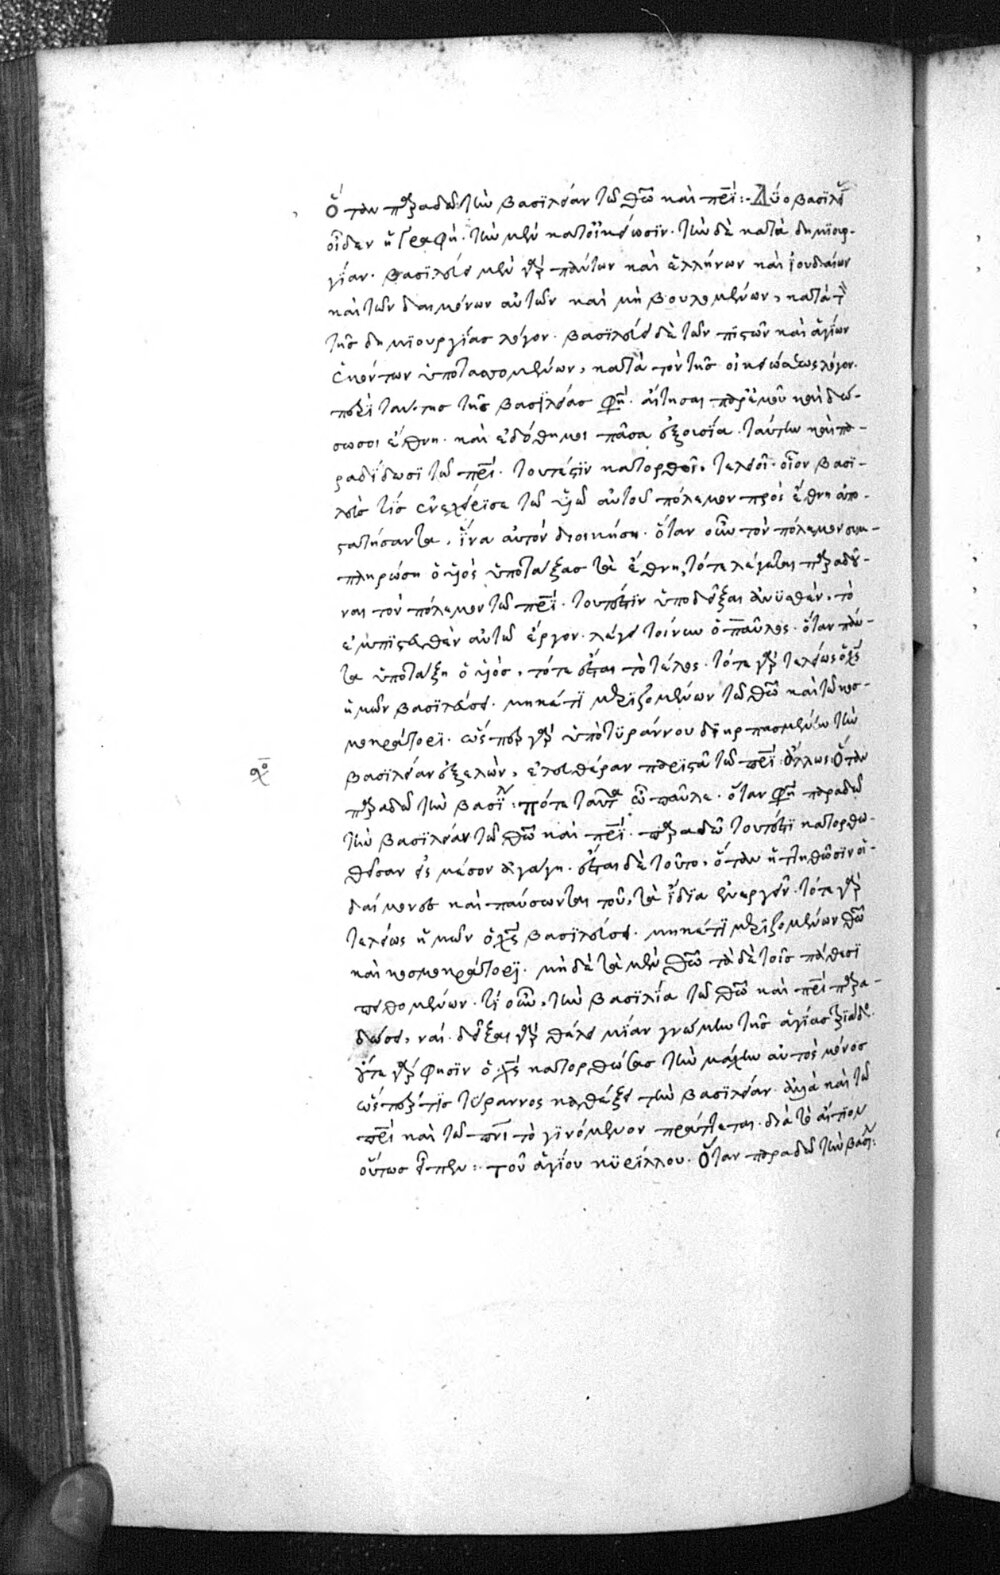 Ὅταν παραδῷ τὴν βασιλείαν τῷ θῶ καὶ πρί :- Δύο βασιλεί
οἶδεν ἡ γραφή. τὴν μὲν κατ οἰκείωσιν. τὴν δὲ κατὰ δημιουρ-
γίαν. βασιλεύει μὲν γὰρ πάντων καὶ ἑλλήνων καὶ ἰουδαίων
καὶ τῶν δαιμόνων αὐτῶν καὶ μὴ βουλομένων, κατὰ τ
τῆς δημιουργίας λόγον. βασιλεύει δὲ τῶν πιστῶν καὶ ἁγίων
ἑκόντων ὑποτασσομένων, κατὰ τὸν τῆς οἰκειώσεως λόγον.
περὶ ταύτης τῆς βασιλείας φη. αἴτησαι παρ' ἐμοῦ καὶ δώ-
σω σοι ἔθνη. καὶ ἐδόθη μοι πᾶσα ἐξουσία. ταύτην καὶ πα-
ραδίδωσι τῷ πρί. τουτέστιν κατορθοῖ. τελειοῖ. οἷον βασι-
λεύς τις ἐνεχείρισε τῷ υἱῷ αὐτοῦ πόλεμον πρὸς ἔθνη ἀπο-
στατήσαντα, ἵνα αὐτὸν διοικήσῃ. ὅταν οὖν τὸν πόλεμον συμ-
πληρώσῃ ὁ υἱὸς ὑποτάξας τὰ ἔθνη, τότε λέγεται παραδοῦ-
ναι τὸν πόλεμον τῷ πρί. τουτέστιν ὑποδεῖξαι ἀνυσθέν, τὸ
ἐμπιστευθὲν αὐτῷ ἔργον. λέγει τοίνυν ὁ παῦλος. ὅταν πάν-
τα ὑποτάξῃ ὁ υἱὸς, τότε ἔσται τὸ τέλος. τότε γὰρ τελείως ὁ χς
ἡμῶν βασιλεύσει. μηκέτι μεριζομένων τῷ θῶ καὶ τῷ κοσ-
μοκράτορι. ὥσπερ γὰρ ὑπὸ τυράννου διηρπασμένην τὴν
βασιλείαν ἐξελὼν, ἐλευθέραν παριστᾶ τῷ πρί. ἄλλως. Ὅταν
παραδῷ τὴν βασιλ : πότε ταῦτα ὦ παῦλε. ὅταν φη παραδῷ
τὴν βασιλείαν τῷ θῶ καὶ πρί. παραδῷ τουτέστι κατορθω-
θεῖσαν εἰς μέσον ἀγάγῃ. ἔσται δὲ τοῦτο, ὅταν ἡττηθῶσιν οἱ
δαίμονες καὶ παύσωνται τοῦ, τὰ ἴδια ἐνεργεῖν. τότε γὰρ
τελείως ἡμῶν ὁ χς βασιλεύσει. μηκέτι μεριζομένων θῶ
καὶ κοσμοκράτορι. μὴ δὲ τὰ μὲν θῶ τὰ δὲ τοῖς πάθεσι
πειθομένων. τί οὖν, τὴν βασιλεία τῷ θῶ καὶ πρί παρα-
δώσει, ναί. δεῖξαι γὰρ θέλει μίαν γνώμην τῆς ἁγίας τριάδο.
εἴτα γὰρ φησιν ὁ χς κατορθώσας τὴν μάχην αὐτὸς μόνος
ὥσπερ τις τύραννος καθέξει τὴν βασιλείαν. ἀλλὰ καὶ τῷ
πρί καὶ τῷ πνι τὸ γινόμενον πράττεται. διὰ τὸ αἴτιον
οὕτως εἶπεν :. τοῦ ἁγίου κυρίλλου. Ὅταν παραδῷ τὴν βασι :